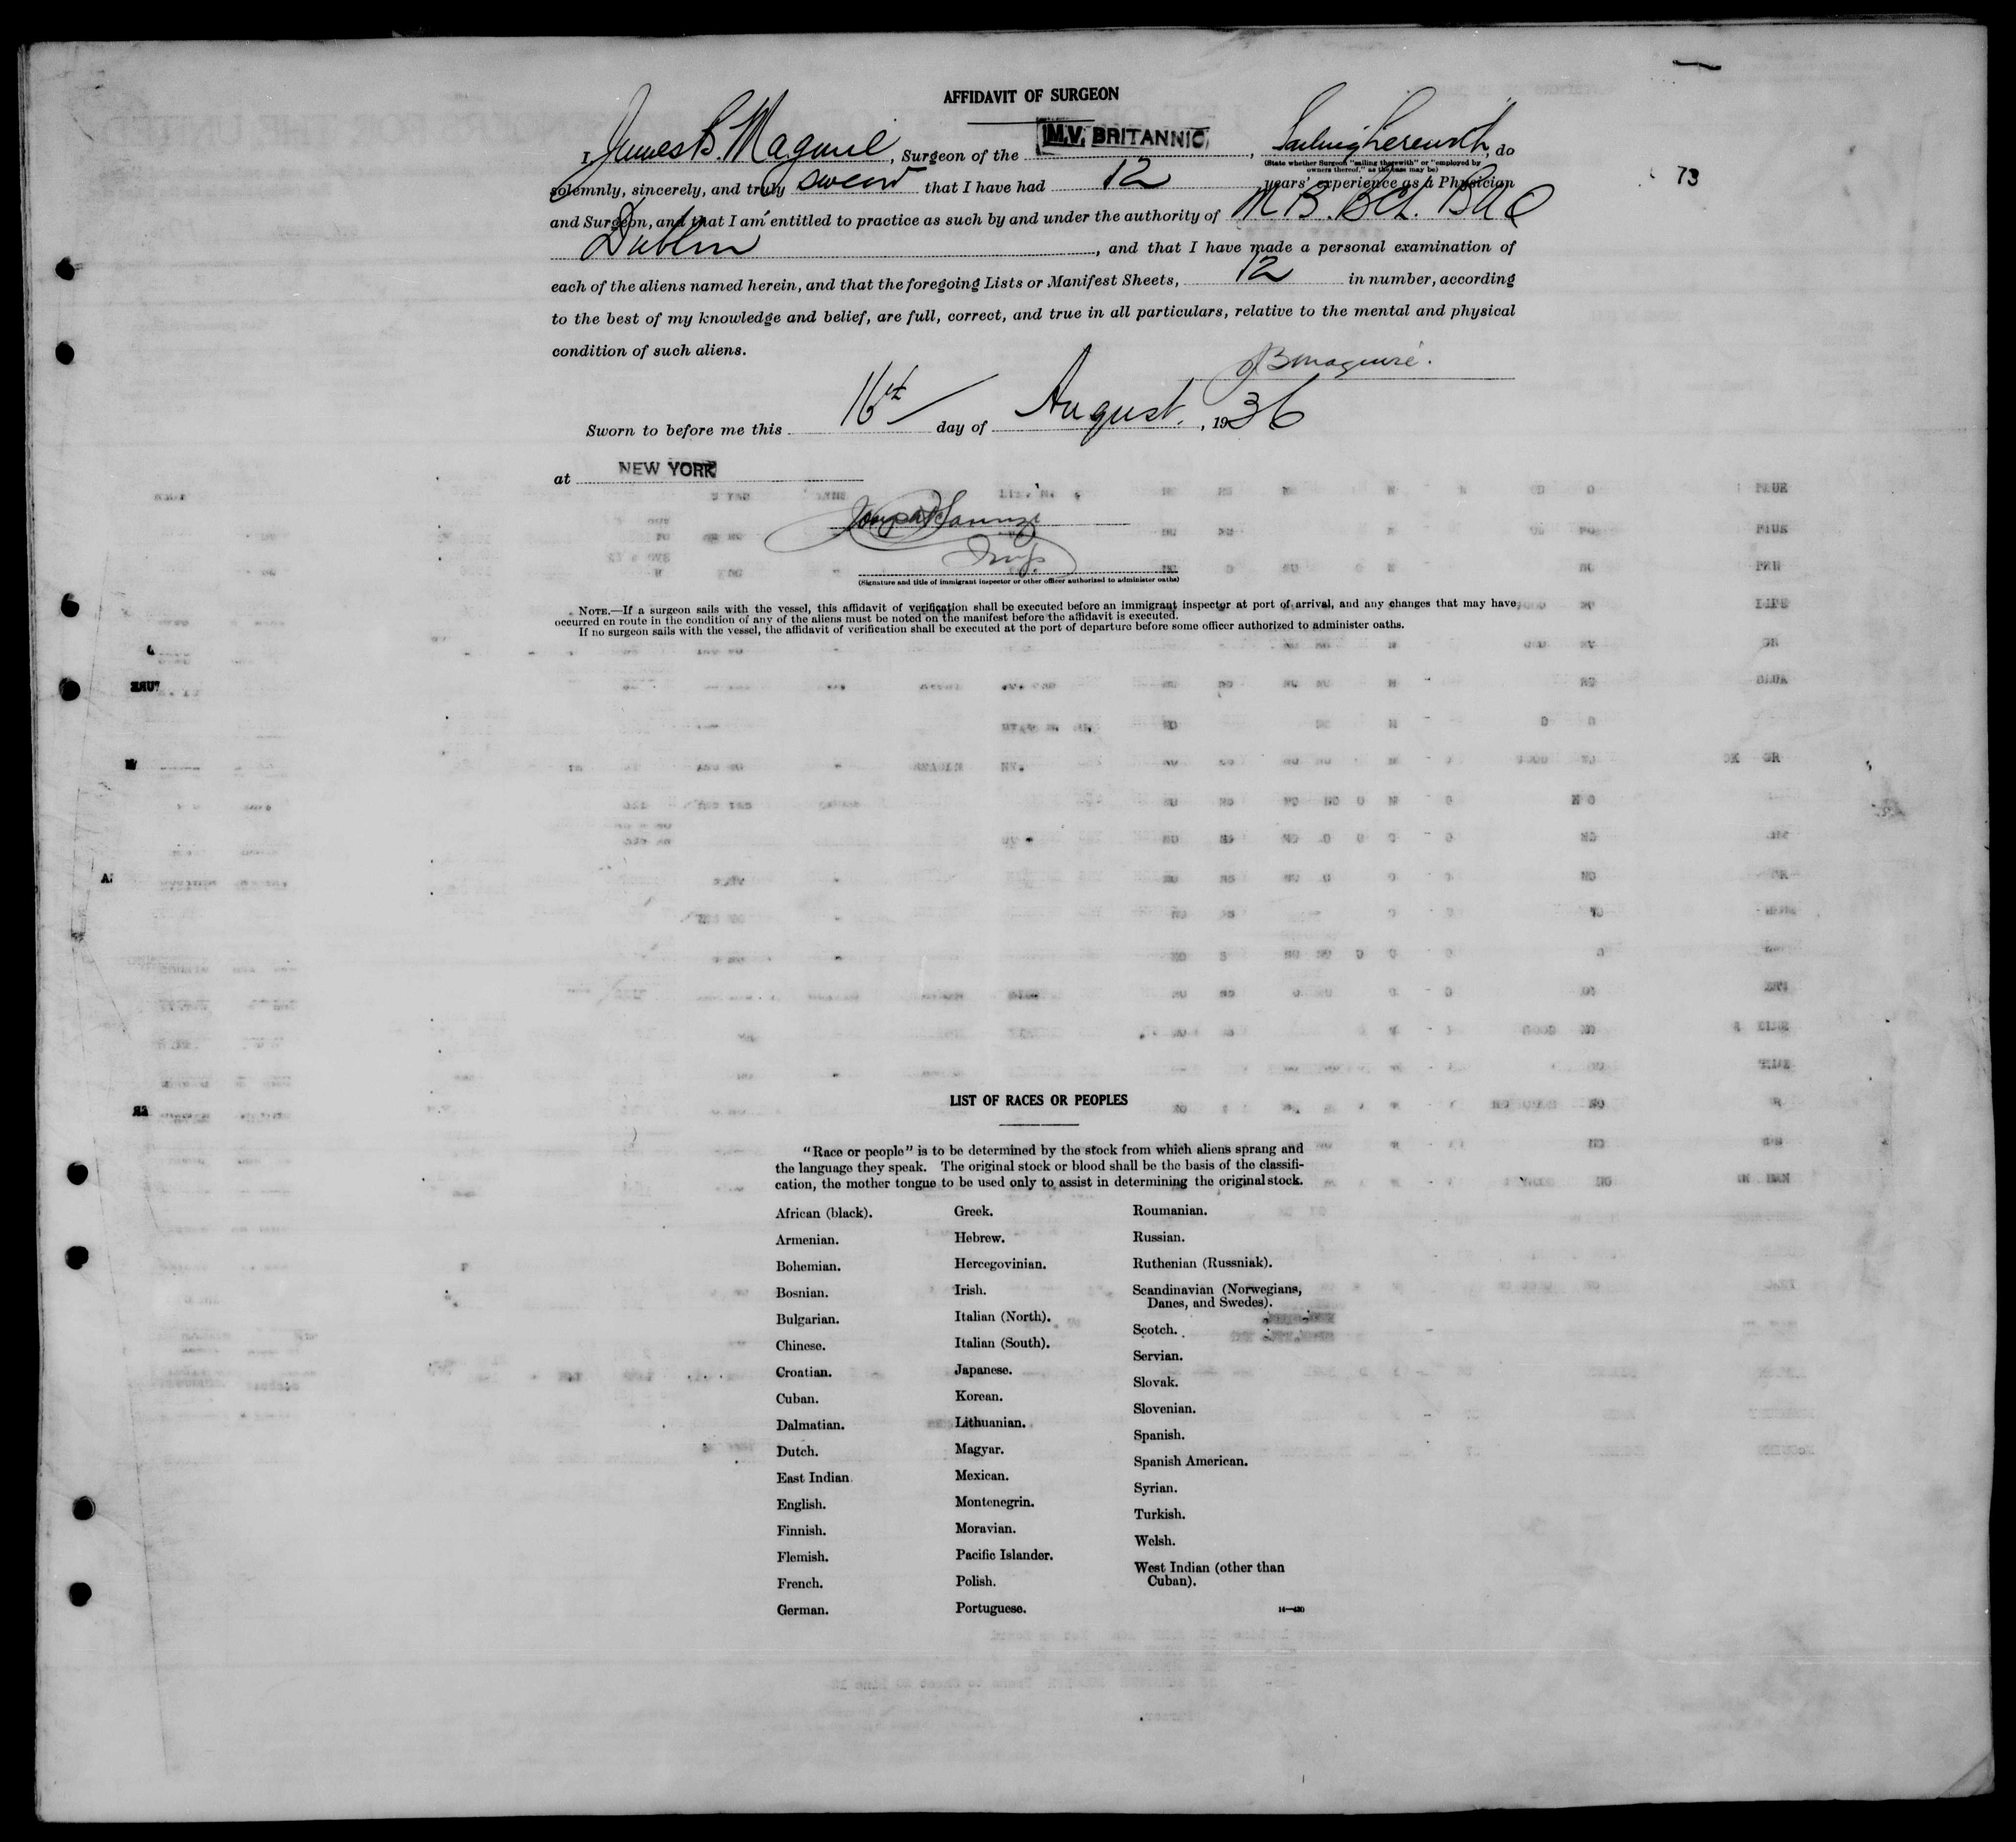 AFFIDAVIT OF SURGEON
I, James B. Maguire, Surgeon of the M.V. BRITANNIC, Sailing therewith, do
(State whether Surgeon "sailing therewith" or "employed by
owners thereof," as the case may be)
73
solemnly, sincerely, and truly swear that I have had 12 years' experience as a Physician
and Surgeon, and that I am entitled to practice as such by and under the authority of M B. BCh. BAO
Dublin, and that I have made a personal examination of
each of the aliens named herein, and that the foregoing Lists or Manifest Sheets, 12 in number, according
to the best of my knowledge and belief, are full, correct, and true in all particulars, relative to the mental and physical
condition of such aliens.
JBMaguire.
Sworn to before me this 16th day of August, 1936
at NEW YORK
Insp.
(Signature and title of immigrant inspector or other officer authorized to administer oaths)
NOTE.—If a surgeon sails with the vessel, this affidavit of verification shall be executed before an immigrant inspector at port of arrival, and any changes that may have
occurred en route in the condition of any of the aliens must be noted on the manifest before the affidavit is executed.
If no surgeon sails with the vessel, the affidavit of verification shall be executed at the port of departure before some officer authorized to administer oaths.
LIST OF RACES OR PEOPLES
"Race or people" is to be determined by the stock from which aliens sprang and
the language they speak. The original stock or blood shall be the basis of the classifi-
cation, the mother tongue to be used only to assist in determining the original stock.
African (black).
Armenian.
Bohemian.
Bosnian.
Bulgarian.
Chinese.
Croatian.
Cuban.
Dalmatian.
Dutch.
East Indian.
English.
Finnish.
Flemish.
French.
German.
Greek.
Hebrew.
Hercegovinian.
Irish.
Italian (North).
Italian (South).
Japanese.
Korean.
Lithuanian.
Magyar.
Mexican.
Montenegrin.
Moravian.
Pacific Islander.
Polish.
Portuguese.
Roumanian.
Russian.
Ruthenian (Russniak).
Scandinavian (Norwegians,
Danes, and Swedes).
Scotch.
Servian.
Slovak.
Slovenian.
Spanish.
Spanish American.
Syrian.
Turkish.
Welsh.
West Indian (other than
Cuban).